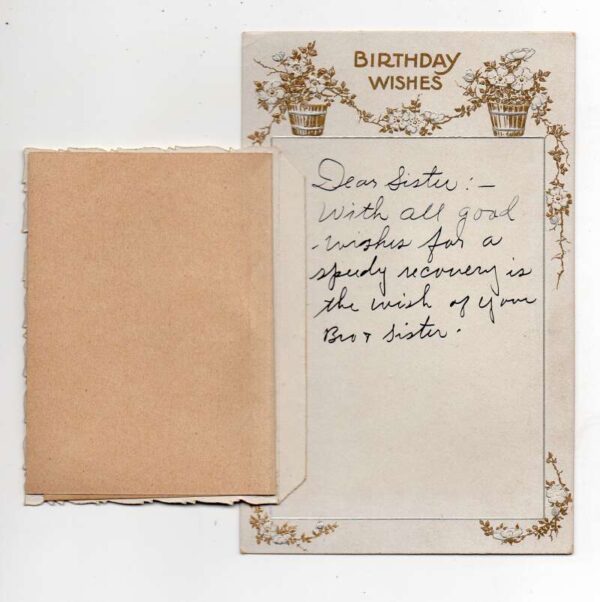 BIRTHDAY
WISHES
Dear Sister:-
With all good
wishes for a
speedy recovery is
the wish of your
Bro & Sister.